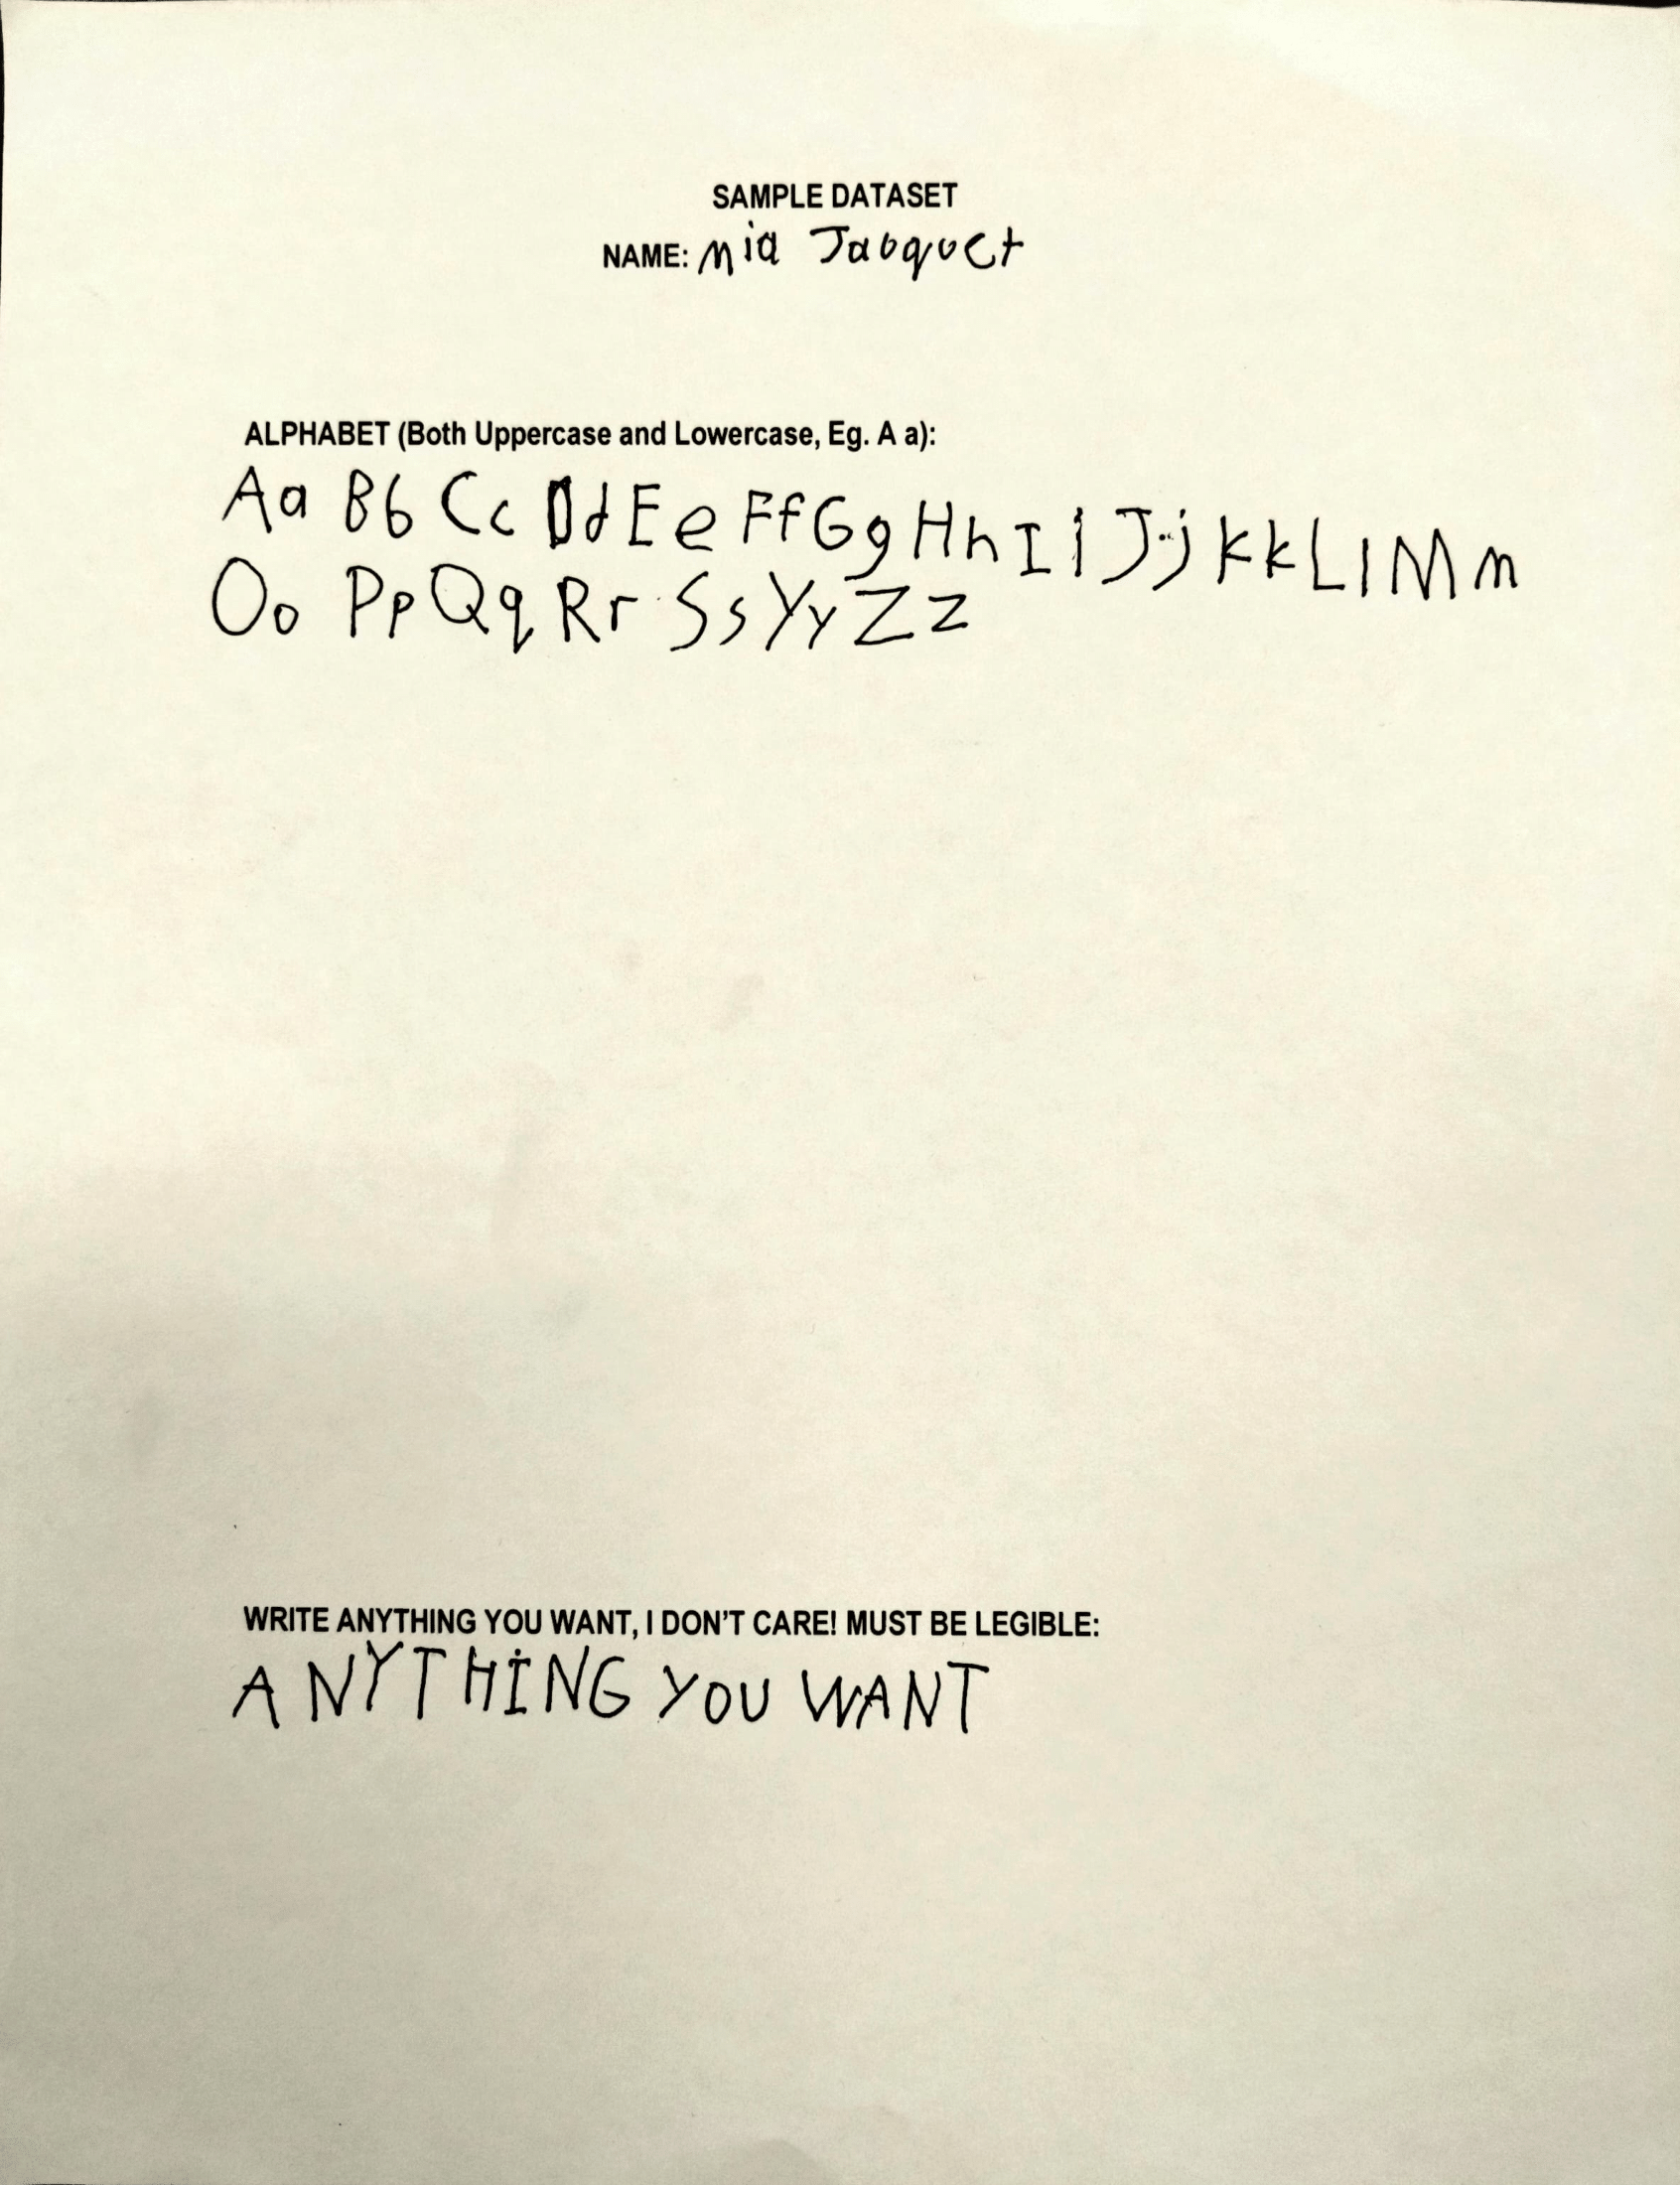 SAMPLE DATASET
NAME: Mia Jaoquet
ALPHABET (Both Uppercase and Lowercase, Eg. A a):
Aa Bb Cc Dd Ee Ff Gg Hh Ii Jj Kk Ll Mm
Oo Pp Qq Rr Ss Yy Zz
WRITE ANYTHING YOU WANT, I DON'T CARE! MUST BE LEGIBLE:
ANYTHING YOU WANT